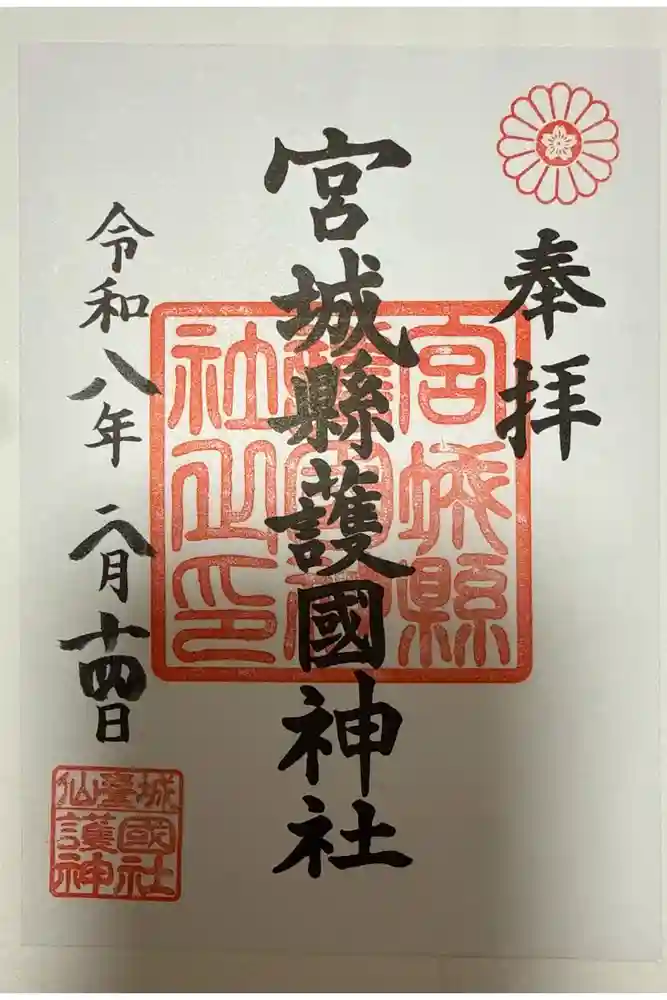 奉拝
宮城縣護國神社
宮城縣
護國神
社之印
令和八年 六月十四日
仙臺城
護國
神社